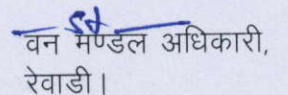 वन मण्डल अधिकारी,
रेवाडी।